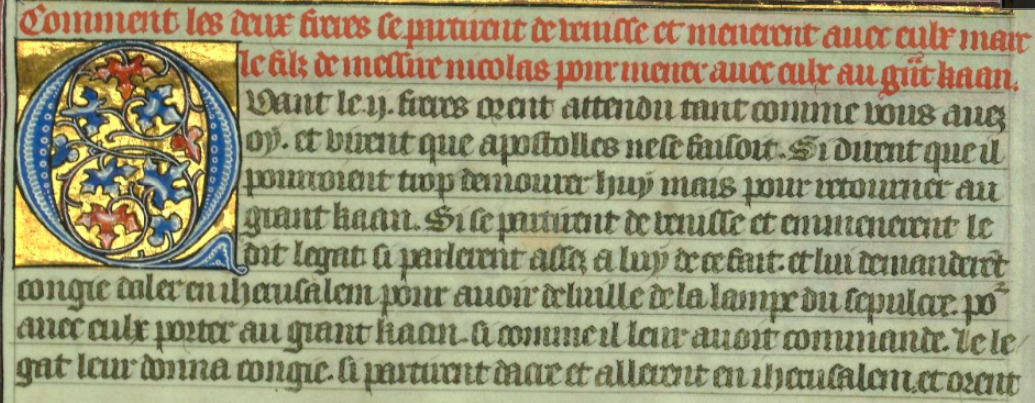 Comment les deux freres se partirent de venisse et menerent auec eulx marc
le filz de messire nicolas pour mener auec eulx au grãt kaan.
Quant le .ij. freres orent attendu tant comme vous auez
oy. et virent que apostolles ne se faisoit. Si dirent que il
pourroient trop demourer huy mais pour retourner au
grant kaan. Si se partirent de venisse et enmenerent le
dit legat si parlerent assez a luy de ce fait. et lui demanderẽt
congie daler en iherusalem pour auoir de luille de la lampe du sepulcre. po᷑
auec eulx porter au grant kaan. si comme il leur auoit commande. Le le
gat leur donna congie. si partirent dacre et allerent en iherusalem. et orent